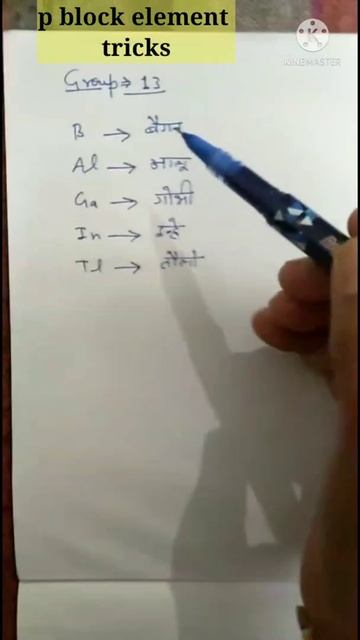 p block element
tricks
KINEMASTER
Group⇒ 13
B → बैगन
Al → आलू
Ga → गोभी
In → इन्हे
Tl → तौलो